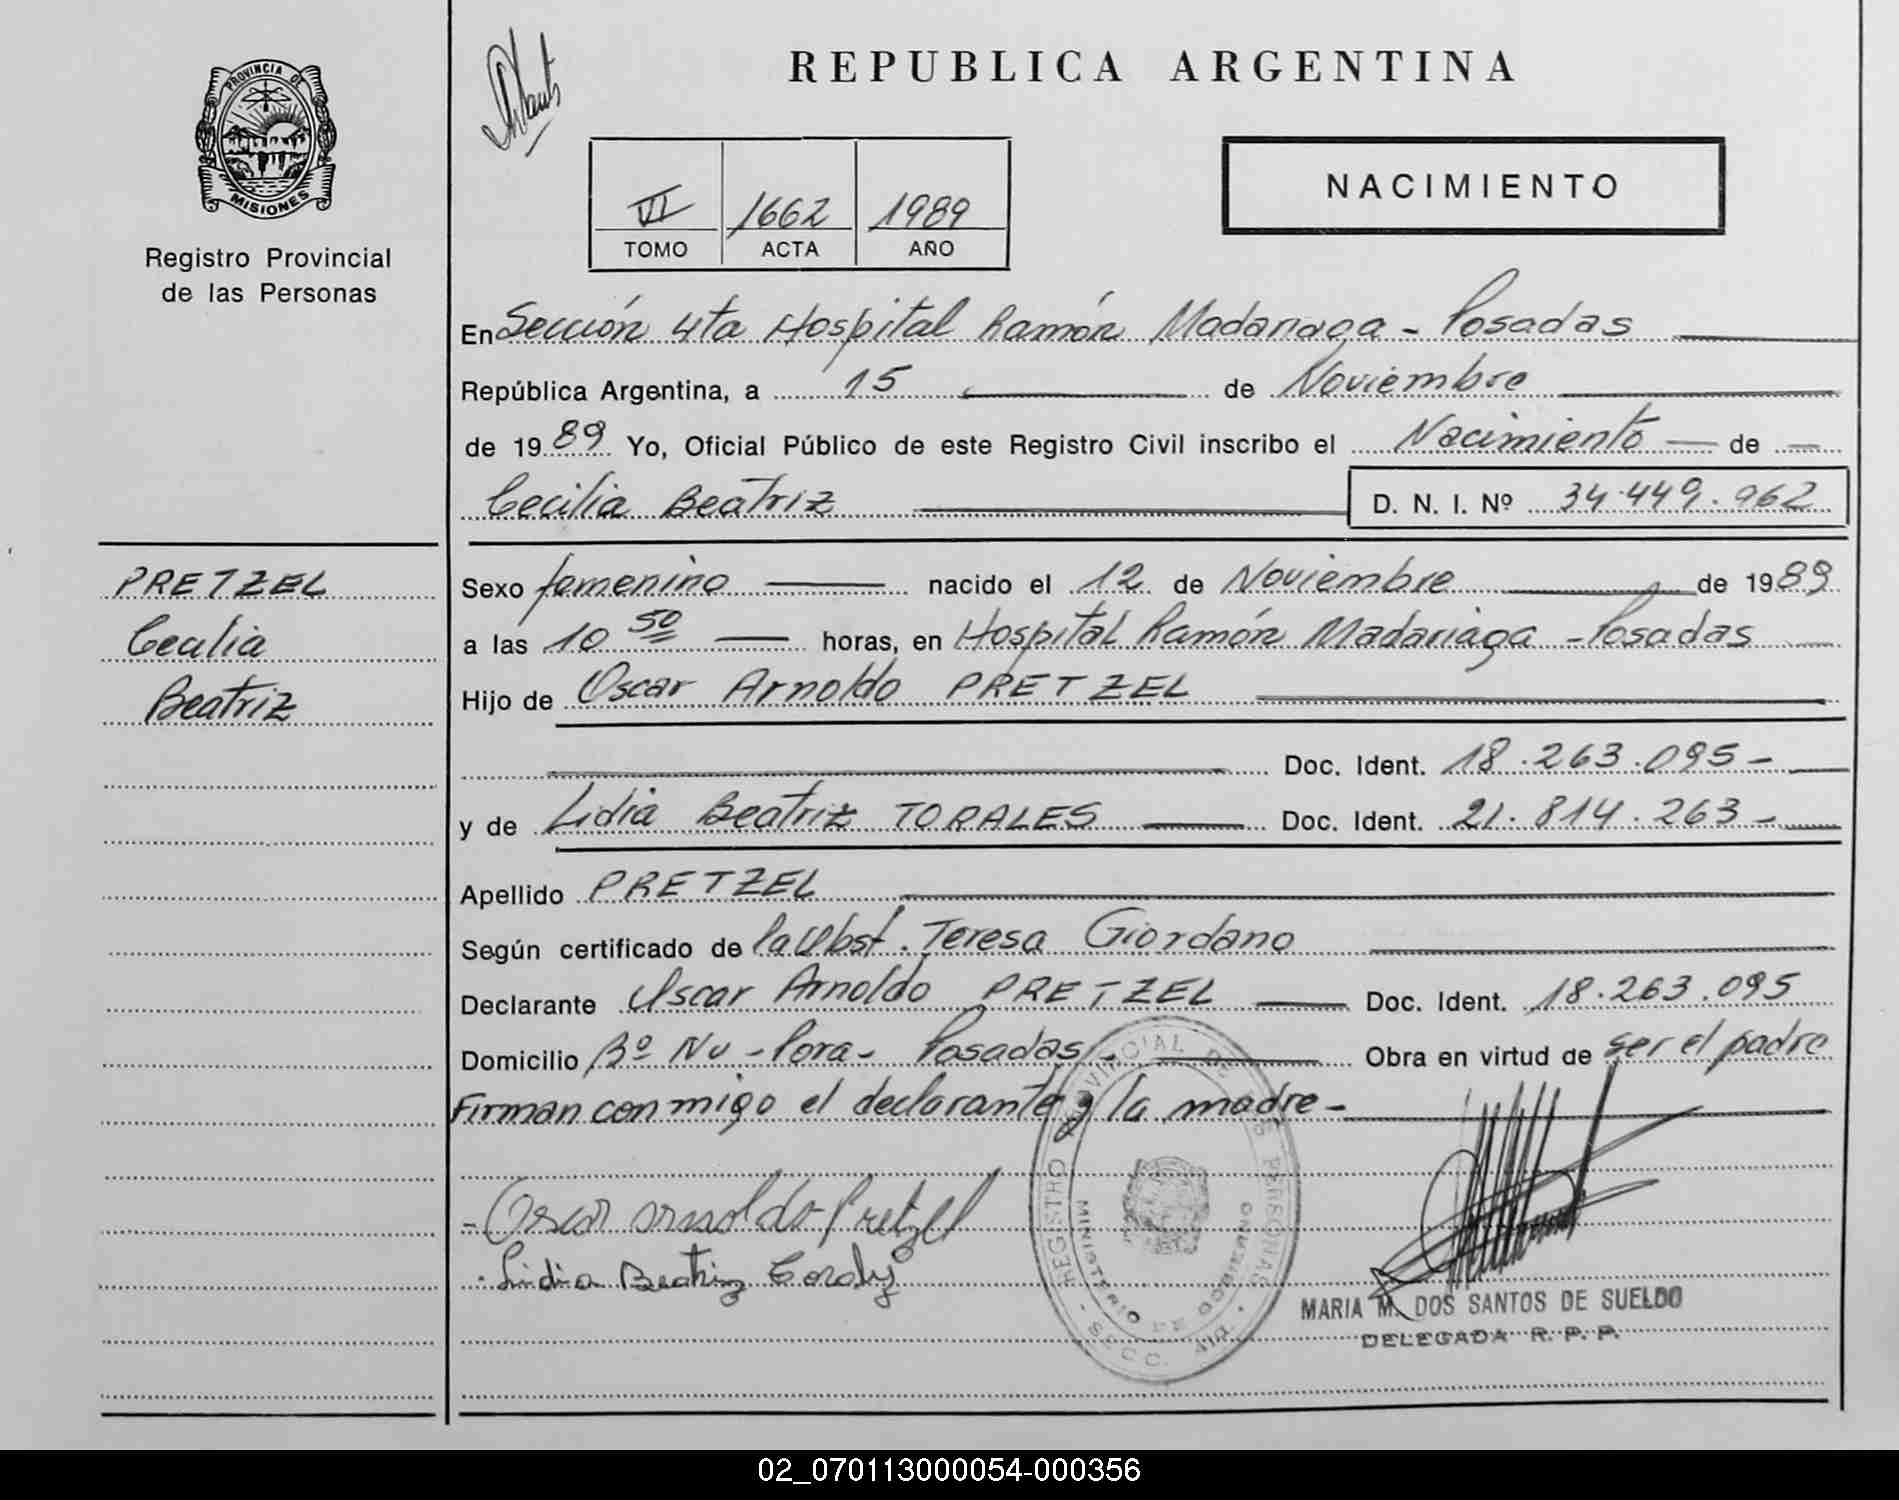 REPUBLICA ARGENTINA
PROVINCIA DE
MISIONES
Registro Provincial
de las Personas
VI 1662 1989
TOMO ACTA AÑO
NACIMIENTO
En Sección 4ta Hospital Ramón Madariaga - Posadas
República Argentina, a 15 de Noviembre
de 1989 Yo, Oficial Público de este Registro Civil inscribo el Nacimiento de
Cecilia Beatriz D. N. I. Nº 34.449.962
PRETZEL
Cecilia
Beatriz
Sexo femenino nacido el 12 de Noviembre de 1989
a las 10 50 horas, en Hospital Ramón Madariaga - Posadas
Hijo de Oscar Arnoldo PRETZEL
Doc. Ident. 18.263.095-
y de Lidia Beatriz TORALES Doc. Ident. 21.814.263-
Apellido PRETZEL
Según certificado de la Obst. Teresa Giordano
Declarante Oscar Arnoldo PRETZEL Doc. Ident. 18.263.095
Domicilio Bº Nu - Pora - Posadas - Obra en virtud de ser el padre
Firman conmigo el declarante y la madre -
- Oscar Arnoldo Pretzel
Lidia Beatriz
REGISTRO PROVINCIAL DE LAS PERSONAS
MINISTERIO DE GOBIERNO
SECC.
MARIA M. DOS SANTOS DE SUELDO
DELEGADA R. P. P.
02_070113000054-000356